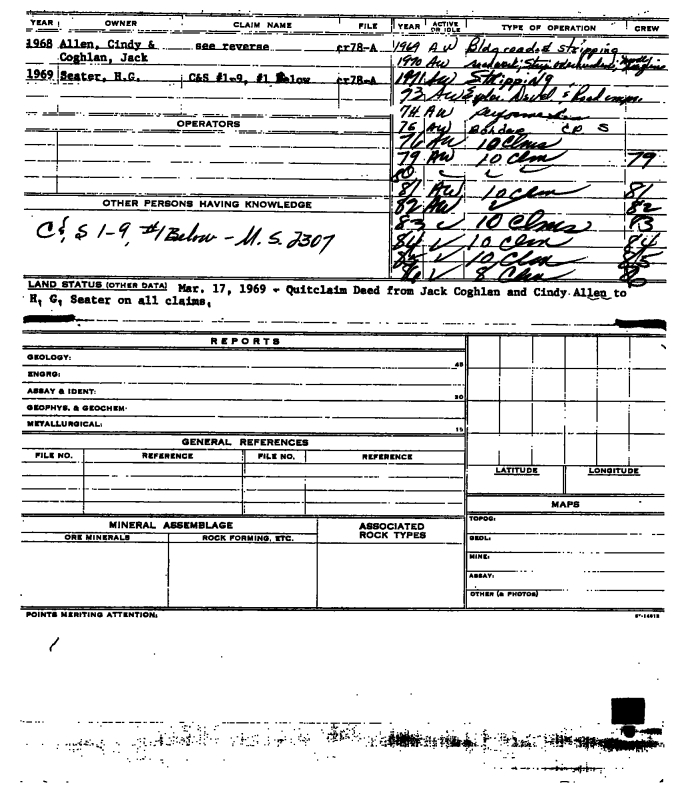 YEAR OWNER CLAIM NAME FILE YEAR ACTIVE OR IDLE TYPE OF OPERATION CREW
1968 Allen, Cindy & see reverse cr78-A 1969 AW Bldg road & Stripping
Coghlan, Jack 1970 AW
1969 Seater, H.G. C&S #1-9, #1 Below cr78-A 1971 AW Stripping
73 AW
74 AW
OPERATORS 75 AW
76 AW 10 Clms
79 AW 10 Clm 79
80 ✓ ✓ ✓
81 AW 10 Clm 81
OTHER PERSONS HAVING KNOWLEDGE 82 AW ✓ 82
C & S 1-9, #1 Below - M.S. 2307 83 ✓ 10 Clms 83
84 ✓ 10 Clm 84
85 ✓ 10 Clm 85
86 ✓ 8 Clm 86
LAND STATUS (OTHER DATA) Mar. 17, 1969 - Quitclaim Deed from Jack Coghlan and Cindy Allen to
H, G, Seater on all claims,
REPORTS
GEOLOGY:
45
ENGRG:
ASSAY & IDENT:
30
GEOPHYS. & GEOCHEM:
METALLURGICAL:
15
GENERAL REFERENCES
FILE NO. REFERENCE FILE NO. REFERENCE
LATITUDE LONGITUDE
MAPS
MINERAL ASSEMBLAGE ASSOCIATED ROCK TYPES
ORE MINERALS ROCK FORMING, ETC.
TOPOG:
GEOL:
MINE:
ASSAY:
OTHER (& PHOTOS)
POINTS MERITING ATTENTION: